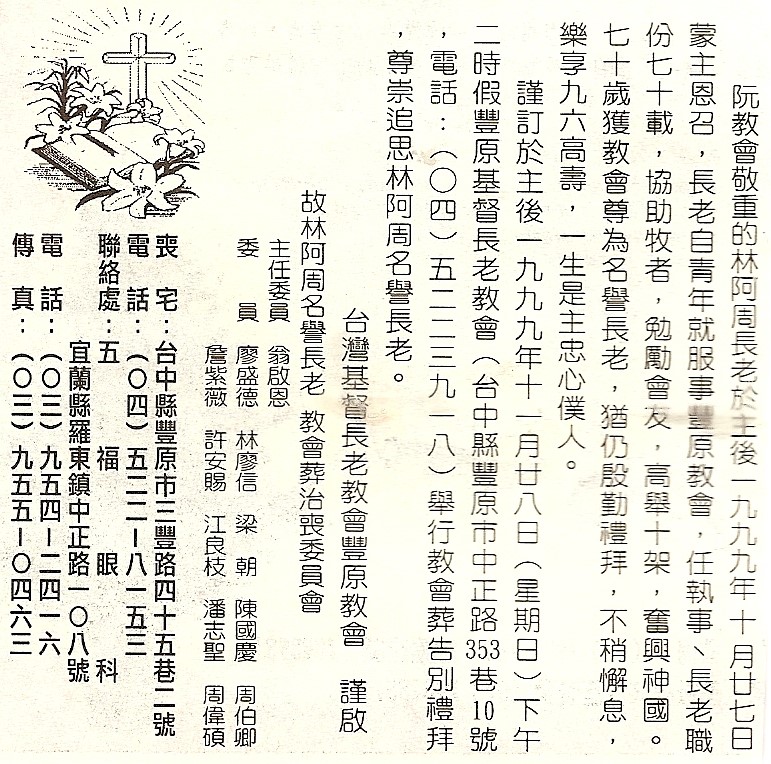 阮教會敬重的林阿周長老於主後一九九九年十月廿七日
蒙主恩召，長老自青年就服事豐原教會，任執事、長老職
份七十載，協助牧者，勉勵會友，高舉十架，奮興神國。
七十歲獲教會尊為名譽長老，猶仍殷勤禮拜，不稍懈息，
樂享九六高壽，一生是主忠心僕人。
謹訂於主後一九九九年十一月廿八日（星期日）下午
二時假豐原基督長老教會（台中縣豐原市中正路353巷10號
，電話：（〇四）五二二三九一八）舉行教會葬告別禮拜
，尊崇追思林阿周名譽長老。
台灣基督長老教會豐原教會　謹啟
故林阿周名譽長老 教會葬治喪委員會
主任委員　翁啟恩
委　員　廖盛德　林廖信　梁　朝　陳國慶　周伯卿
詹紫薇　許安賜　江良枝　潘志聖　周偉碩
喪　宅：台中縣豐原市三豐路四十五巷二號
電　話：（〇四）五二二－八一五三
聯絡處：五　福　眼　科
宜蘭縣羅東鎮中正路一〇八號
電　話：（〇三）九五四－二四一六
傳　真：（〇三）九五五－〇四六三